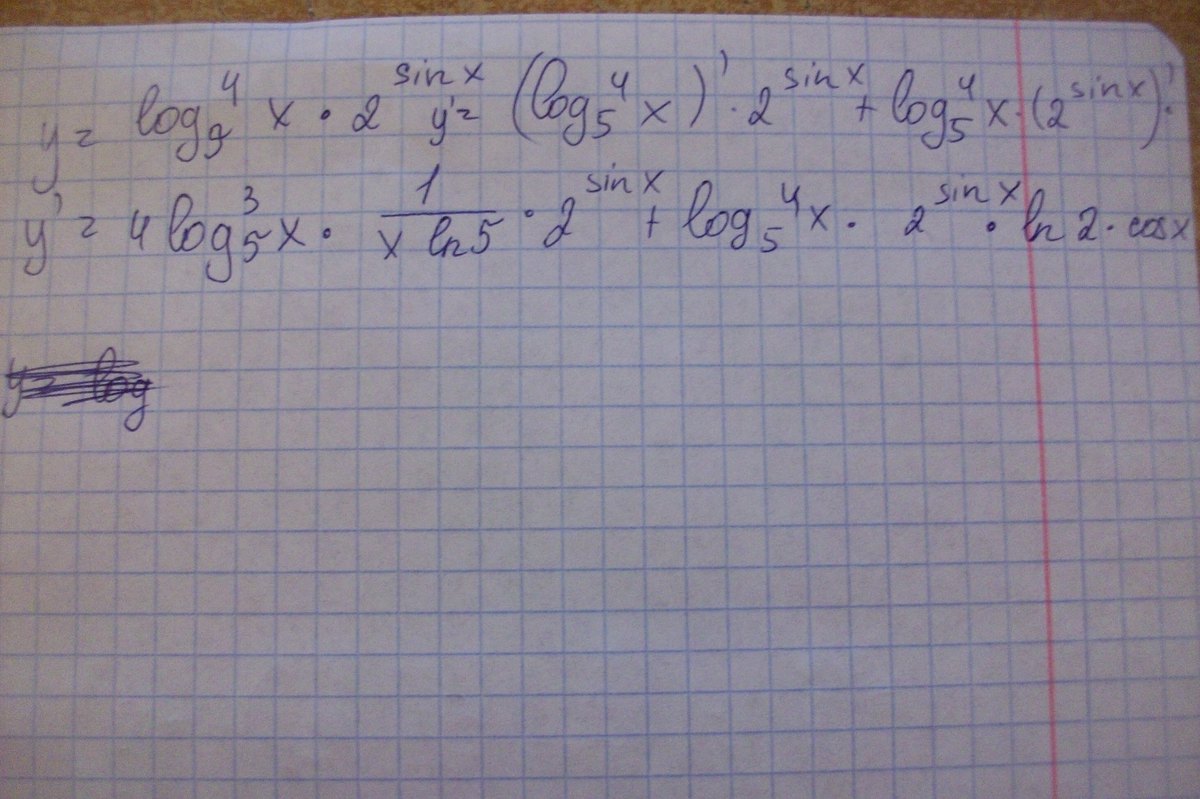 y = log₉⁴ x · 2^(sin x) y' = (log₅⁴ x)' · 2^(sin x) + log₅⁴ x · (2^(sin x))' ·
y' = 4 log₅³ x · 1/(x ln 5) · 2^(sin x) + log₅⁴ x · 2^(sin x) · ln 2 · cos x
y = log